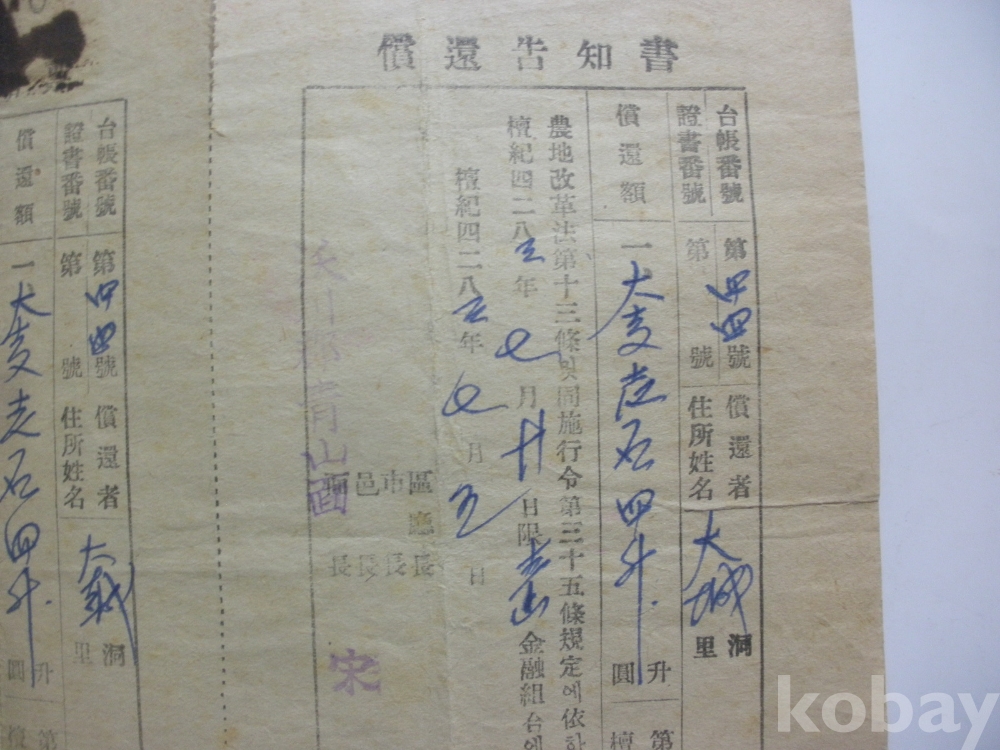 償還告知書
台帳番號 第四四號 償還者 大城 洞
證書番號 第 號 住所姓名 里
償還額 一 大麥壱石四斗. 升
圓
第
檀
農地改革法第十三條및同施行令第三十五條規定에依하
檀紀四二八三年七月廿日限青山金融組合에
檀紀四二八三年七月五日
區廳長
市長
邑長
面長
沃川郡 青山面 宋
台帳番號 第四四號 償還者 大城 洞
證書番號 第 號 住所姓名 里
償還額 一 大麥壱石四斗. 升
圓
第
檀
kobay